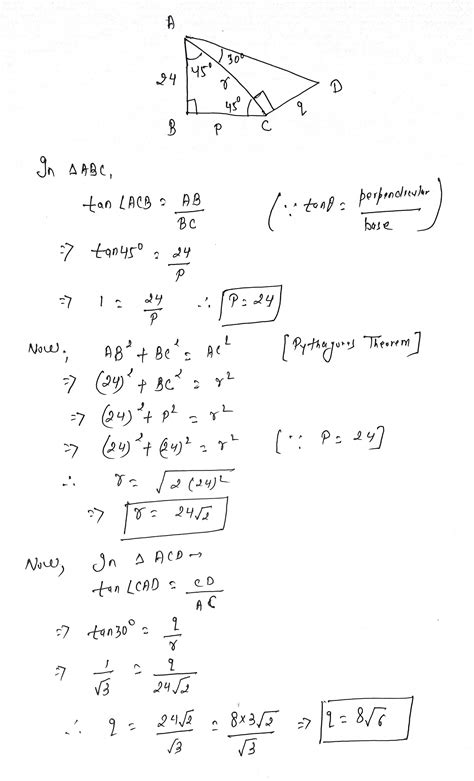 A
45° 30°
24 r D
45° q
B P C
In △ABC,
tan∠ACB = AB/BC (∵ tanθ = perpendicular/base)
⇒ tan45° = 24/P
⇒ 1 = 24/P ∴ P = 24
Now, AB² + BC² = AC² [Pythagoras Theorem]
⇒ (24)² + BC² = r²
⇒ (24)² + P² = r²
⇒ (24)² + (24)² = r² [∵ P = 24]
∴ r = √2(24)²
⇒ r = 24√2
Now, In △ACD →
tan∠CAD = CD/AC
⇒ tan30° = q/r
⇒ 1/√3 = q/24√2
∴ q = 24√2/√3 = 8×3√2/√3 ⇒ q = 8√6